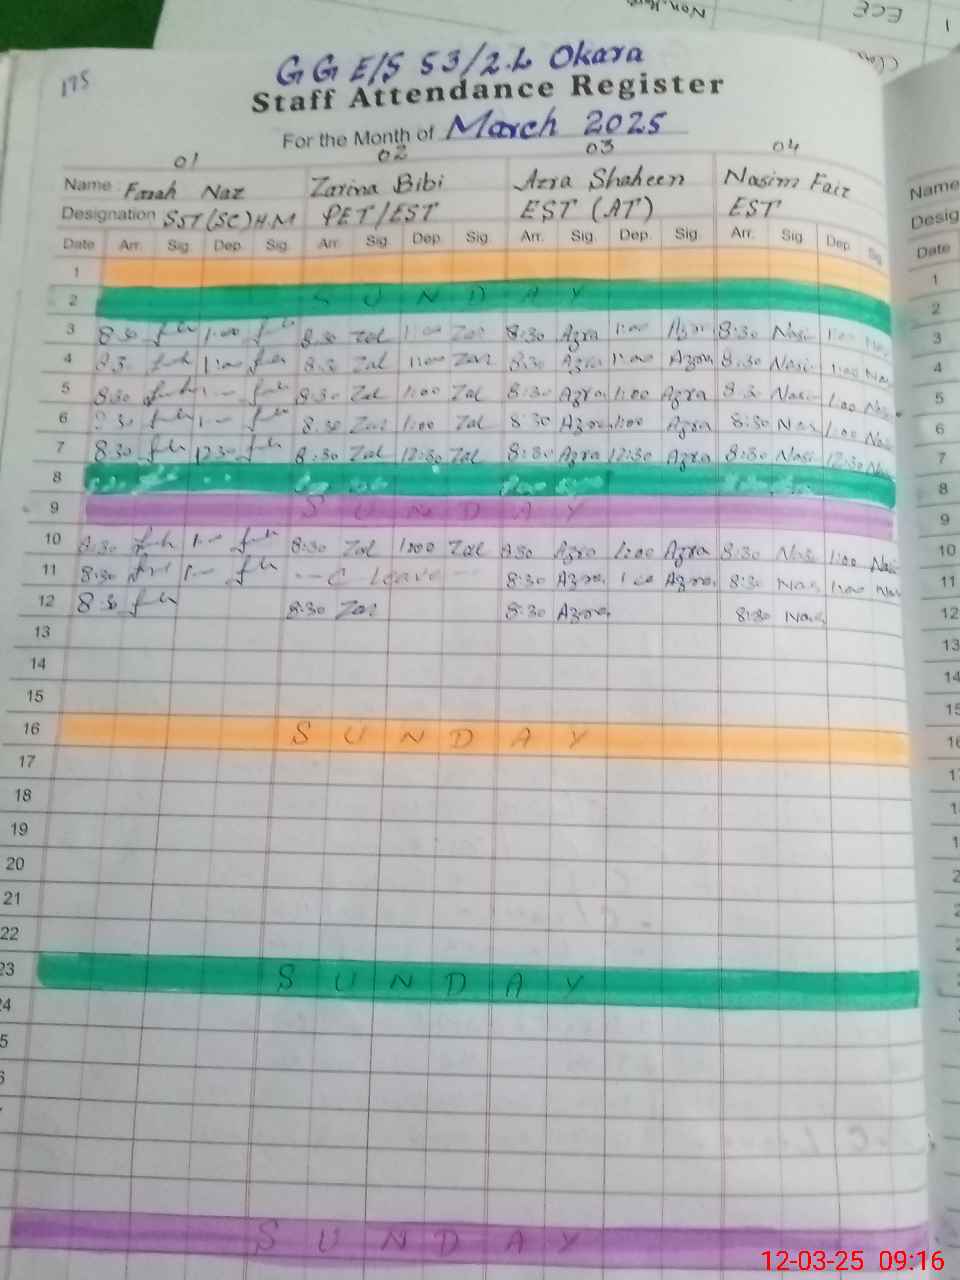 175
GGE/S 53/2.L Okara
Staff Attendance Register
For the Month of March 2025
01 02 03 04
Name Farah Naz Zarina Bibi Azra Shaheen Nasim Faiz
Designation SST(SC)H.M PET/EST EST (AT) EST
Date Arr. Sig. Dep. Sig. Arr. Sig. Dep. Sig. Arr. Sig. Dep. Sig. Arr. Sig Dep. Sig
1
2 SUNDAY
3 8:30 1:00 8:30 Zal 1:00 Zar 8:30 Azra 1:00 Azra 8:30 Nasi 1:00 Nas
4 8:30 1:00 8:30 Zal 1:00 Zar 8:30 Azra 1:00 Azra 8:30 Nasi 1:00 Nas
5 8:30 8:30 Zal 1:00 Zal 8:30 Azra 1:00 Azra 8:30 Nasi 1:00 Nasi
6 8:30 8:30 Zar 1:00 Zal 8:30 Azra 1:00 Azra 8:30 Nas 1:00 Nasi
7 8:30 12:30 8:30 Zal 12:30 Zal 8:30 Azra 12:30 Azra 8:30 Nasi 12:30 Nas
8
9 SUNDAY
10 8:30 8:30 Zal 1:00 Zal 8:30 Azra 1:00 Azra 8:30 Nas 1:00 Nasi
11 8:30 C leave 8:30 Azra 1:00 Azra 8:30 Nas 1:00 Nas
12 8:30 8:30 Zar 8:30 Azra 8:30 Nas
13
14
15
16 SUNDAY
17
18
19
20
21
22
23 SUNDAY
24
5
6
SUNDAY
Name
Desig
Date
1
2
3
4
5
6
7
8
9
10
11
12
13
14
15
16
ECE
Non.
12-03-25 09:16